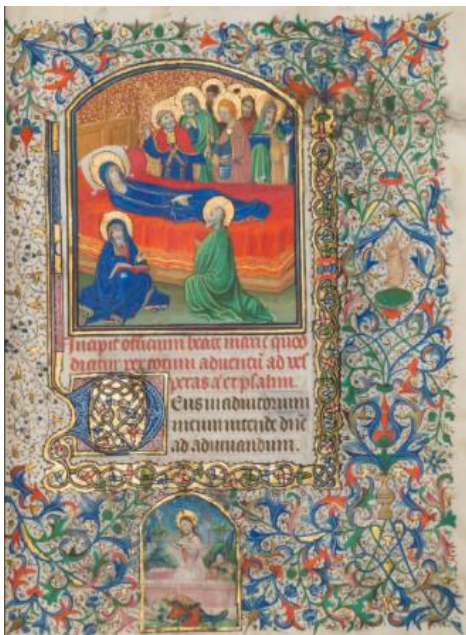 Incipit officium beate marie quod
dicitur per totum aduentū ad ves
peras a͞ et psalm.
Deus in adiutorium
meum intende dn̄e
ad adiuuandum.